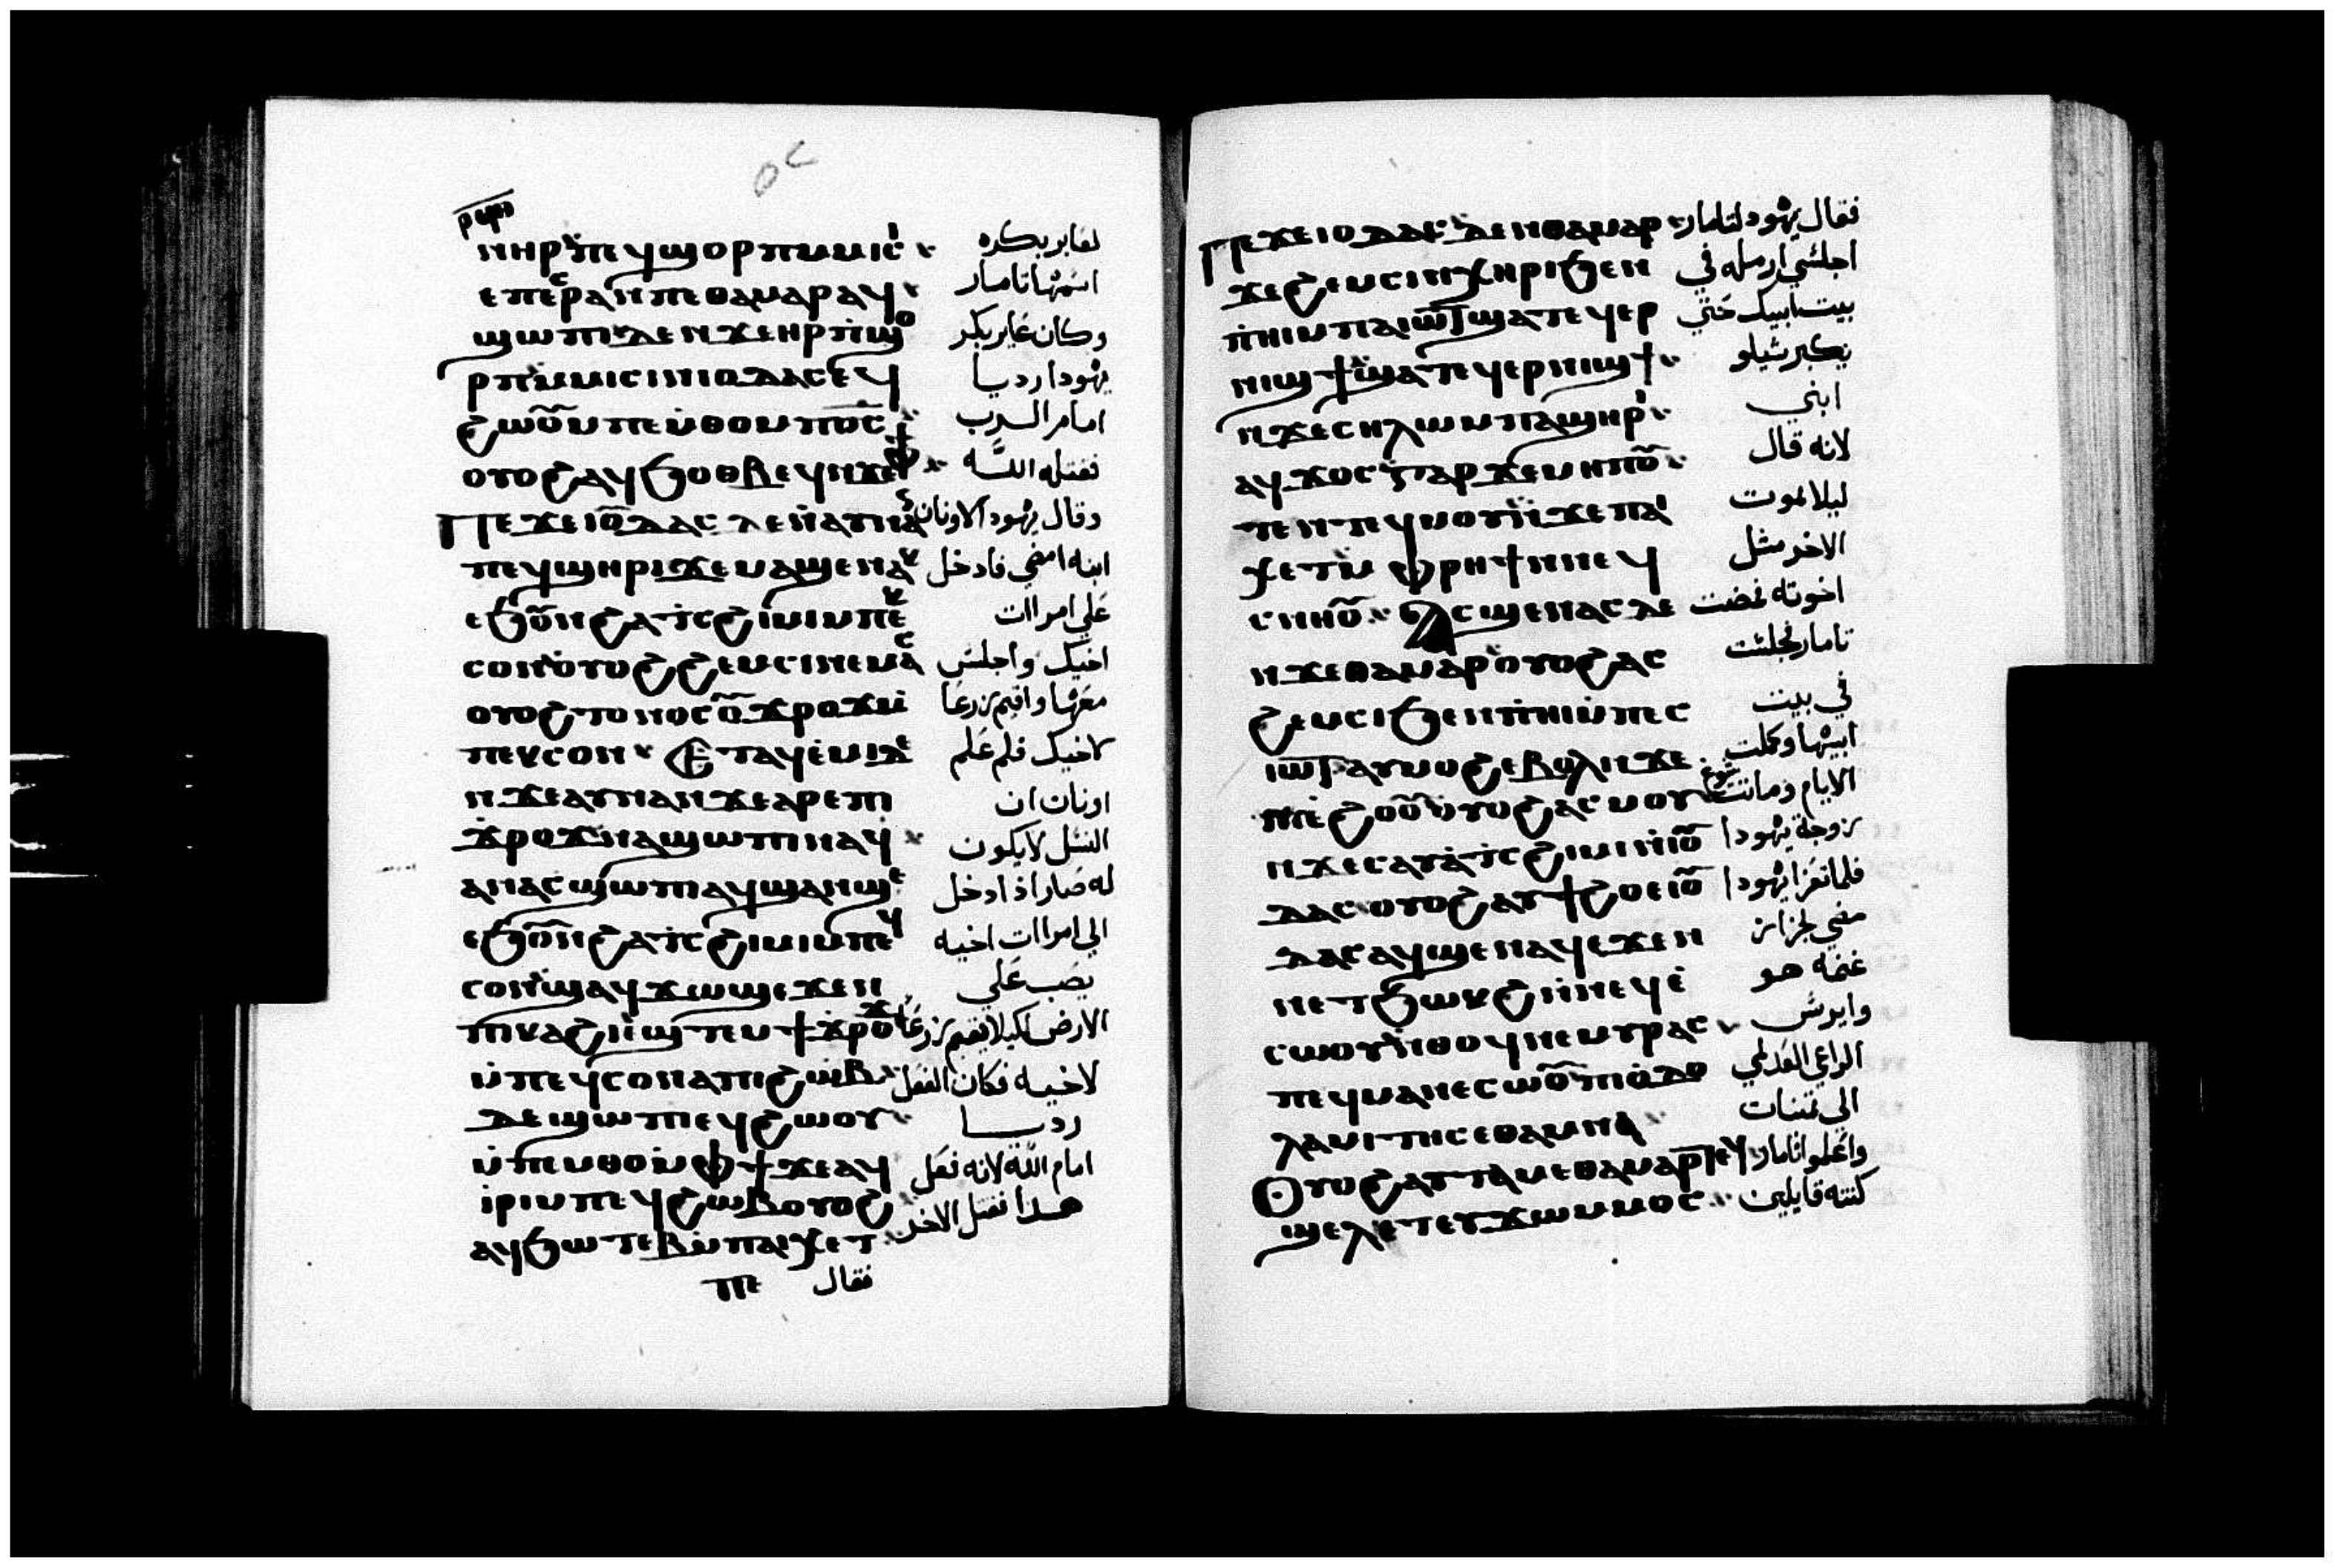 ⲣϥⲏ
ⲛⲏⲣ ⲡⲉϥϣⲟⲣⲡⲙⲙⲓⲥ لعابر بكره
ⲉⲡⲉⲥⲣⲁⲛⲡⲉⲑⲁⲙⲁⲣⲁϥ اسمها تامار
ϣⲱⲡⲓⲇⲉⲛϫⲉⲏⲣⲡϣⲟ وكان عاير بكر
ⲣⲡⲙⲙⲓⲥⲓⲛⲓⲟⲩⲇⲁⲥⲉϥ يهودا رديا
ϩⲱⲟⲩⲙⲡⲉⲙⲑⲟⲙⲡⲟⲥ امام الرب
ⲟⲩⲟϩⲁϥϧⲟⲑⲃⲉϥⲛϫⲉⲫϯ فقتله الله
ⲡⲉϫⲉⲓⲟⲩⲇⲁⲥ ⲇⲉⲛⲁⲩⲛⲁⲛ وقال يهودا لاونان
ⲡⲉϥϣⲏⲣⲓϫⲉⲙⲁϣⲉⲛⲁⲕ ابنه امضي فادخل
ⲉϧⲟⲩⲛϩⲁⲧⲥϩⲓⲙⲓⲙⲡⲉⲕ علي امراات
ⲥⲟⲛⲟⲩⲟϩϩⲉⲙⲥⲓⲛⲉⲙⲁⲥ اخيك واجلس
ⲟⲩⲟϩⲧⲟⲩⲛⲟⲥⲟⲩϫⲣⲟϫⲙ معها واقيم زرعا
ⲡⲉⲕⲥⲟⲛ ⲉⲧⲁϥⲉⲙⲓⲇⲉ لاخيك فلم علم
ⲛϫⲉⲁⲩⲛⲁⲛϫⲉⲁⲣⲉⲡⲓ اونان ان
ϫⲣⲟϫⲛⲁϣⲱⲡⲓⲛⲁϥ النسل لايكون
ⲁⲛⲁⲥϣⲱⲡⲓⲁϥϣⲁⲛϣⲉ له صار اذا دخل
ⲉϧⲟⲩⲛϩⲁⲧⲥϩⲓⲙⲓⲙⲡⲉϥ الي امراات اخيه
ⲥⲟⲛϣⲁϥϫⲱϣⲉϫⲉⲛ يصب علي
ⲡⲓⲕⲁϩⲓⲛϣⲧⲉⲙϯϫⲣⲟϫ الارض لكيلا يقيم زرعا
ⲙⲡⲉϥⲥⲟⲛⲁⲡⲓϩⲱⲃ لاخيه فكان الفعل
ⲇⲉϣⲱⲡⲓⲉϥϩⲱⲟⲩ رديا
ⲙⲡⲉⲙⲑⲟⲙⲫϯϫⲉⲁϥ امام الله لانه فعل
ⲓⲣⲓⲙⲡⲉϥϩⲱⲃⲟⲩⲟϩ هدا فقتل الاخر
ⲁϥϧⲱⲧⲉⲃⲙⲡⲁⲓⲭⲉⲧ
ⲡⲉ فقال
ⲡⲉϫⲉⲓⲟⲩⲇⲁⲥⲇⲉⲛⲑⲁⲙⲁⲣ فقال يهودا لتامار
ϫⲉϩⲉⲙⲥⲓⲛⲭⲏⲣⲓϧⲉⲛ اجلسي ارمله في
ⲡⲏⲓⲙⲡⲁⲓⲱⲧϣⲁⲧⲉϥⲉⲣ بيت ابيك حتي
ⲛⲓϣϯϣⲁⲧⲉϥⲉⲣⲛⲓϣϯ يكبر شيلو
ⲛϫⲉⲥⲏⲗⲱⲙⲡⲁϣⲏⲣⲓ ابني
ⲁϥϫⲟⲥⲅⲁⲣϫⲉⲙⲏⲡⲟⲩ لانه قال
ⲧⲉⲛⲧⲉϥⲙⲟⲩⲛϫⲉⲡⲁⲓ ليلا يموت
ⲭⲉⲧⲙⲫⲣⲏϯⲛⲛⲉϥ الاخر مثل
ⲥⲛⲏⲟⲩ ⲁⲥϣⲉⲛⲁⲥⲇⲉ اخوته فمضت
ⲛϫⲉⲑⲁⲙⲁⲣⲟⲩⲟϩⲁⲥ تامار فجلست
ϩⲉⲙⲥⲓϧⲉⲛⲡⲏⲓⲙⲡⲉⲥ في بيت
ⲓⲱⲧⲁⲩⲙⲟϩⲉⲃⲟⲗⲛϫⲉ ابيها وكملت
ⲛⲓⲉϩⲟⲟⲩⲟⲩⲟϩⲁⲥⲙⲟⲩ الايام وماتت شوع
ⲛϫⲉⲥⲁⲩⲁⲧⲥϩⲓⲙⲓⲛⲓⲟⲩ زوجة يهودا
ⲇⲁⲥⲟⲩⲟϩⲁⲩϯϩⲟⲉⲓⲟⲩ فلما تعزا يهودا
ⲇⲁⲥⲁϥϣⲉⲛⲁϥⲉϫⲉⲛ مضي لجزاز
ⲛⲉⲧϧⲱⲕϩⲓⲛⲛⲉϥⲉ غنمه هو
ⲥⲱⲟⲩⲛⲑⲟϥⲛⲉⲙⲩⲣⲁⲥ وايرس
ⲡⲉϥⲙⲁⲛⲉⲥⲱⲟⲩⲡⲓⲟⲇⲟ الراعي العدلمي
ⲗⲁⲙⲓⲧⲏⲥⲉⲑⲁⲙⲛⲁ الي تمنات
ⲟⲩⲟϩⲁⲩⲧⲁⲙⲉⲑⲁⲙⲁⲣⲧⲉϥ واعلموا تامار
ϣⲉⲗⲉⲧⲉⲩϫⲱⲙⲙⲟⲥ كنته قايلين